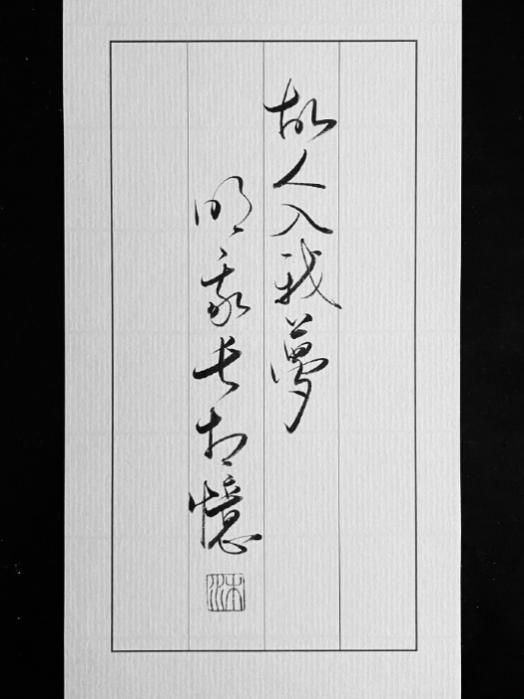 故人入我夢
明我長相憶
沐